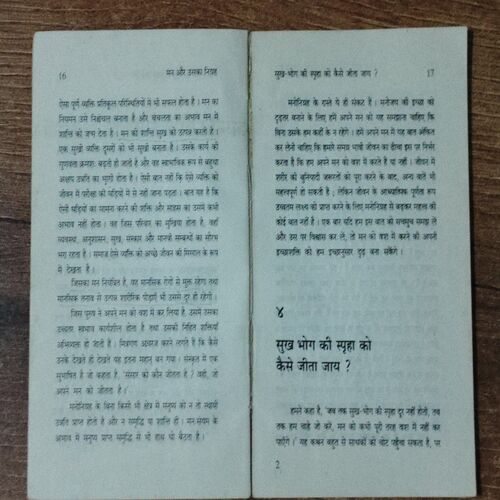 16
मन और उसका निग्रह
ऐसा पूर्ण व्यक्ति प्रतिकूल परिस्थितियों में भी सफल होता है। मन का
नियमन उसे निश्चल बनाता है और चंचलता का अभाव मन में
शान्ति को जन्म देता है। मन की शान्ति सुख को उत्पन्न करती है।
एक सुखी व्यक्ति दूसरों को भी सुखी बनाता है। उसके कार्य की
गुणवत्ता क्रमशः बढ़ती ही जाती है और वह स्वाभाविक रूप से बहुधा
अक्षय उन्नति का भागी होता है। ऐसी बात नहीं कि ऐसे व्यक्ति को
जीवन में परीक्षा की घड़ियों में से नहीं जाना पड़ता। बात यह है कि
ऐसी घड़ियों का सामना करने की शक्ति और साहस का उसमें कभी
अभाव नहीं होता। वह जिस परिवार का मुखिया होता है, वहाँ
व्यवस्था, अनुशासन, सुख, संस्कार और मानवी सम्बन्धों का सौरभ
भरा रहता है। समाज ऐसे व्यक्ति को अच्छे जीवन की मिसाल के रूप
में देखता है।
जिसका मन नियंत्रित है, वह मानसिक रोगों से मुक्त रहेगा तथा
मानसिक तनाव से उत्पन्न शारीरिक पीड़ाएँ भी उससे दूर ही रहेंगी।
जिस पुरुष ने अपने मन को वश में कर लिया है, उसमें उसका
उच्चतर स्वभाव कार्यशील होता है तथा उसकी निहित शक्तियाँ
अभिव्यक्त हो जाती हैं। मित्रगण अचरज करने लगते हैं कि कैसे
उनके देखते ही देखते वह इतना महान् बन गया। संस्कृत में एक
सुभाषित है जो कहता है, 'संसार को कौन जीतता है? वही, जो
अपने मन को जीतता है।'
मनोनिग्रह के बिना किसी भी क्षेत्र में मनुष्य को न तो स्थायी
उन्नति प्राप्त होती है और न समृद्धि या शान्ति ही। मन:संयम के
अभाव में मनुष्य प्राप्त समृद्धि से भी हाथ धो बैठता है।
सुख-भोग की स्पृहा को कैसे जीता जाय ?
17
मनोनिग्रह के रास्ते ये ही संकट हैं। मनोजय की इच्छा को
दृढ़तर बनाने के लिए हमें अपने मन को यह समझाना चाहिए कि
बिना उसके हम कहीं के न रहेंगे। हमें अपने मन में यह बात अंकित
कर लेनी चाहिए कि हमारे समग्र भावी जीवन का ढाँचा इस पर निर्भर
करता है कि हम अपने मन को वश में करते हैं या नहीं। जीवन में
शरीर की बुनियादी जरूरतों को पूरा करने के बाद, अन्य बातें भी
महत्त्वपूर्ण हो सकती हैं; लेकिन जीवन के आध्यात्मिक पूर्णता रूप
उच्चतम लक्ष्य की प्राप्त करने के लिए मनोनिग्रह से बढ़कर महत्त्व की
कोई बात नहीं है। एक बार यदि हम इस बात को सचमुच समझ लें
और उस पर विश्वास कर लें, तो मन को वश में करने की अपनी
इच्छाशक्ति को हम इच्छानुसार दृढ़ बना सकेंगे।
४
सुख भोग की स्पृहा को
कैसे जीता जाय ?
हमने कहा है, 'जब तक सुख-भोग की स्पृहा दूर नहीं होती, तब
तक हम चाहे जो करें, मन को कभी पूरी तरह वश में नहीं कर
पाएँगे।' यह कथन बहुत से साधकों को चोट पहुँचा सकता है, पर
2